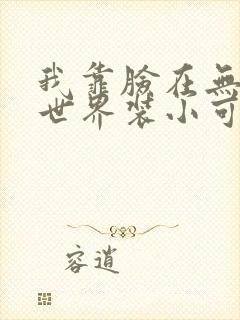 我靠臉在無
世界裝小可
容逍